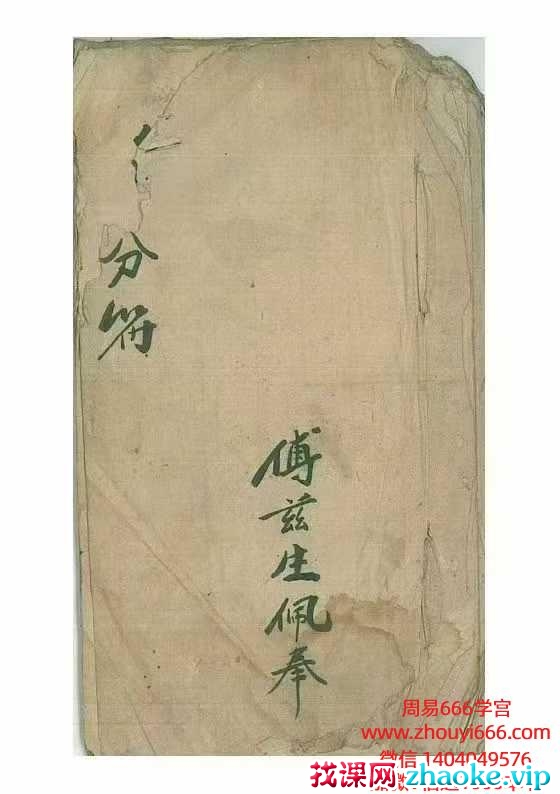 分符
傅兹生佩奉
周易666学宫
www.zhouyi666.com
微信 1404049576
找课网zhaoke.vip